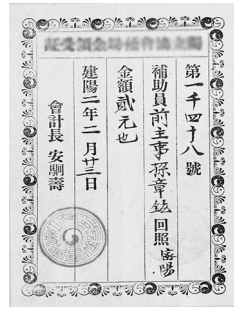 第一千四十八號
補助員前主事孫章鉉回照密陽
金額貳元也
建陽二年二月廿三日
會計長 安駉壽